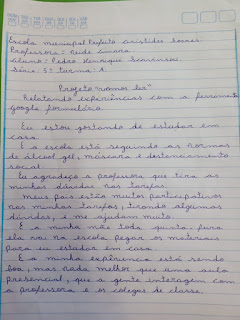 Escola municipal Prefeito Aristides Soares
Professora = Neide
Aluno: Pedro Henrique
Série: 5º turma: 1
Projeto "vamos ler"
Relatando experiências com a ferramenta
Google formulário
Eu estou gostando de estudar em
casa.
E a escola está seguindo as normas
de álcool gel, máscara e destanciamento
social.
Eu agradeço a professora que tera as
minhas dúvidas nas tarefas.
Meus pais estão muito participativos
nas minhas tarefas, tirando algumas
dúvidas, e me ajudam muito.
E a minha mãe toda quarta-fura
ela vai na escola pegar os materiais
para eu estudar em casa.
E a minha experiência está sendo
boa, mas nada melhor que uma aula
presencial, que a gente interagem com
a professora e os colegas de classe.